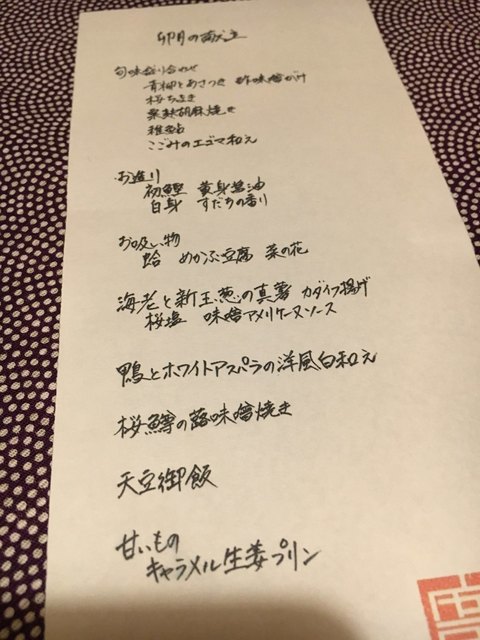 卯月の献立
旬味盛り合わせ
青柳とあさつき 酢味噌がけ
桜ちまき
粟麩胡麻焼き
稚鮎
こごみのエゴマ和え
お造り
初鰹 黄身醤油
白身 すだちの香り
お吸い物
蛤 めかぶ豆腐 菜の花
海老と新玉葱の真薯 カダイフ揚げ
桜塩 味噌アメリケーヌソース
鴨とホワイトアスパラの洋風白和え
桜鱒の蕗味噌焼き
天豆御飯
甘いもの
キャラメル生姜プリン